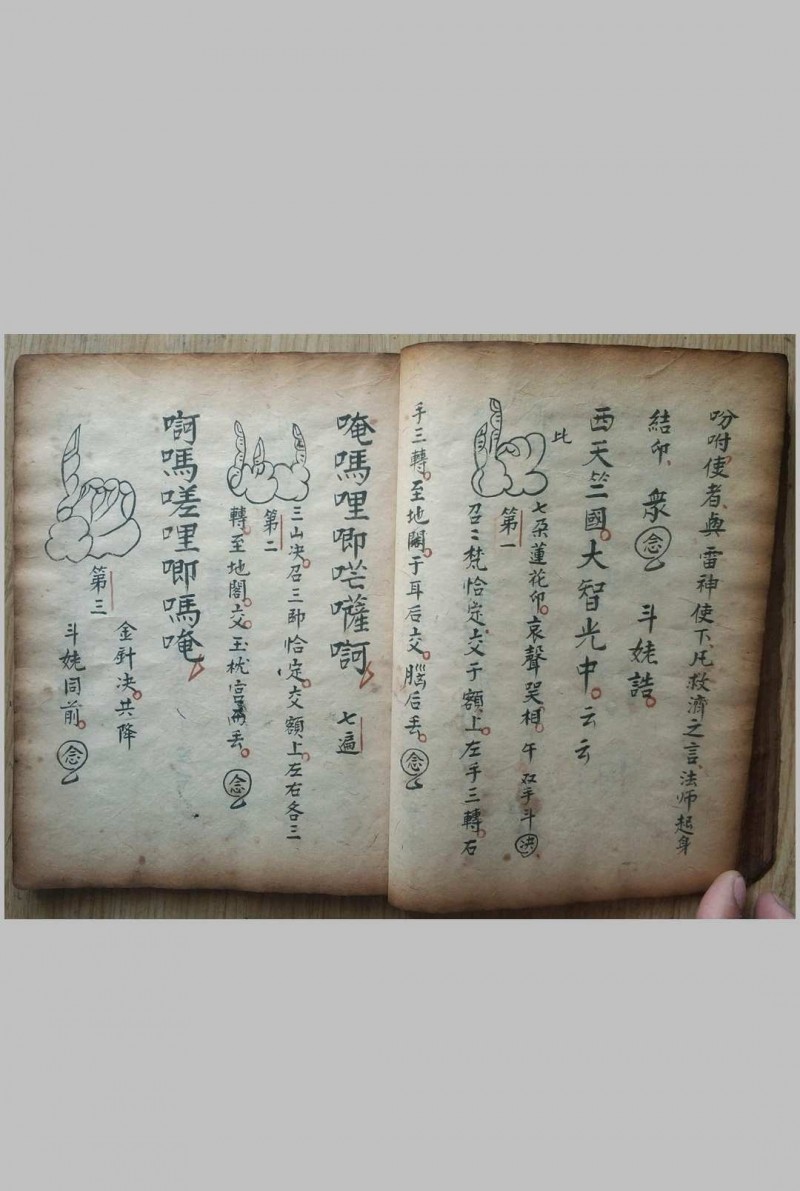 吩咐使者、與雷神使下、凡救濟之言、法师起身
結印、 衆 念 斗姥誥。
西天竺國。大智光中。云云
比
第一
七朶蓮花印。哀聲哭相。午 双手斗决、
召二梵恰定、交于額上。左手三轉。右
手三轉。至地閣。于耳后交。腦后丢。 念
唵嗎哩唧𠵽囖嗬 七遍
第二
三山决。召三師恰定。交額上。左右各三
轉。至地閣。交。玉枕宫丢。 念
嗬嗎嗟哩唧嗎唵
第三
金針决。共降
斗姥同前。 念